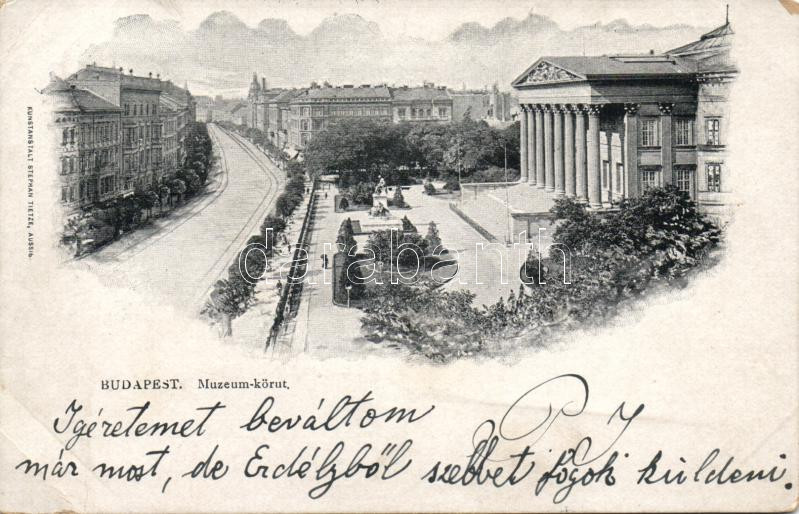 KUNSTANSTALT STEPHAN TIETZE, AUSSIG.
darabanth
BUDAPEST. Muzeum-körut.
Igéretemet beváltom
már most, de Erdélyből szebbet fogok küldeni.